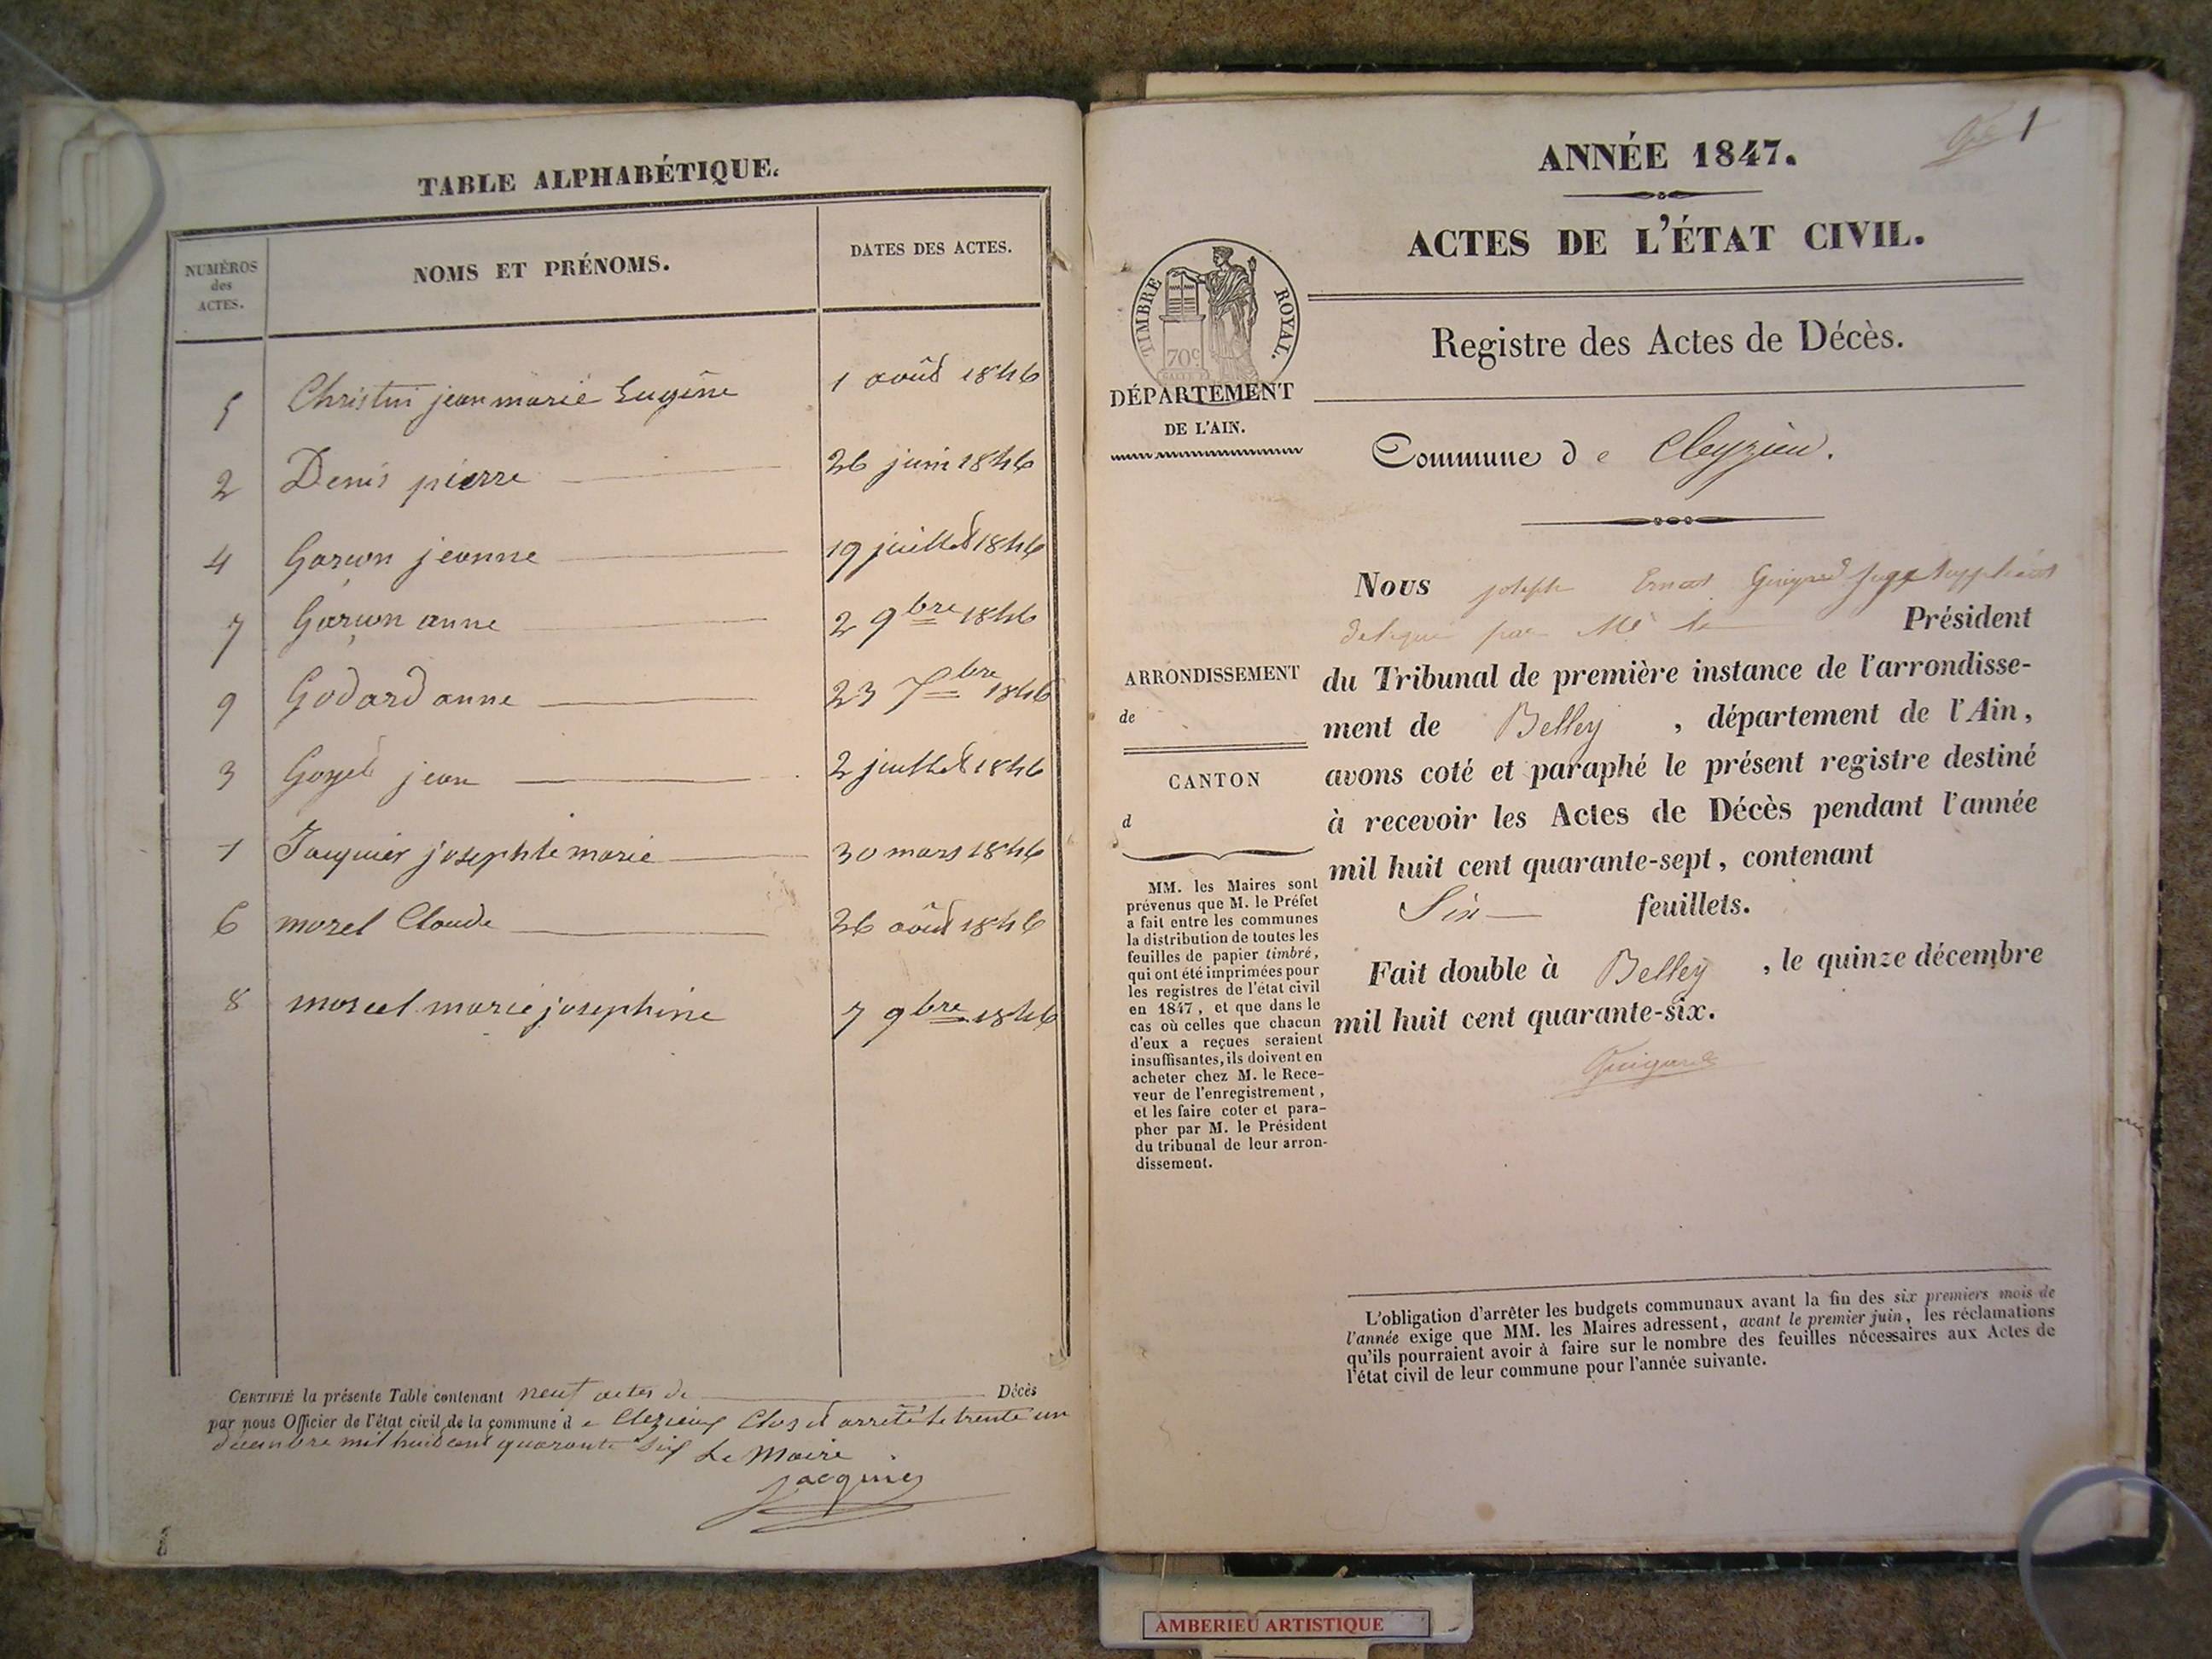 TABLE ALPHABÉTIQUE.
NUMÉROS des ACTES. NOMS ET PRÉNOMS. DATES DES ACTES.
5 Christin jean marie Eugène 1 aoûd 1846
2 Denis pierre 26 juin 1846
4 Garçon jeanne 19 juilled 1846
7 Garçon anne 2 9bre 1846
9 Godard anne 23 7bre 1846
3 Goyed jean 2 juilled 1846
1 Jacquier josephte marie 30 mars 1846
6 morel Claude 26 aoûd 1846
8 morel marie josephine 7 9bre 1846
CERTIFIÉ la présente Table contenant neuf actes de Décès
par nous Officier de l'état civil de la commune d e Cleyzieu Clos et arrêté le trente un
décembre mil huit cent quarante six Le Maire
jacquier
1
ANNÉE 1847.
ACTES DE L'ÉTAT CIVIL.
TIMBRE ROYAL.
70c
Registre des Actes de Décès.
DÉPARTEMENT
DE L'AIN.
Commune d e Cleyzieu.
Nous joseph Ernest Guigard juge suppléant
délégué par Mr le Président
du Tribunal de première instance de l'arrondisse-
ment de Belley , département de l'Ain,
avons coté et paraphé le présent registre destiné
à recevoir les Actes de Décès pendant l'année
mil huit cent quarante-sept, contenant
Six feuillets.
Fait double à Belley , le quinze décembre
mil huit cent quarante-six.
Guigard
ARRONDISSEMENT
de
CANTON
d
MM. les Maires sont
prévenus que M. le Préfet
a fait entre les communes
la distribution de toutes les
feuilles de papier timbré,
qui ont été imprimées pour
les registres de l'état civil
en 1847, et que dans le
cas où celles que chacun
d'eux a reçues seraient
insuffisantes, ils doivent en
acheter chez M. le Rece-
veur de l'enregistrement,
et les faire coter et para-
pher par M. le Président
du tribunal de leur arron-
dissement.
L'obligation d'arrêter les budgets communaux avant la fin des six premiers mois de
l'année exige que MM. les Maires adressent, avant le premier juin, les réclamations
qu'ils pourraient avoir à faire sur le nombre des feuilles nécessaires aux Actes de
l'état civil de leur commune pour l'année suivante.
AMBERIEU ARTISTIQUE